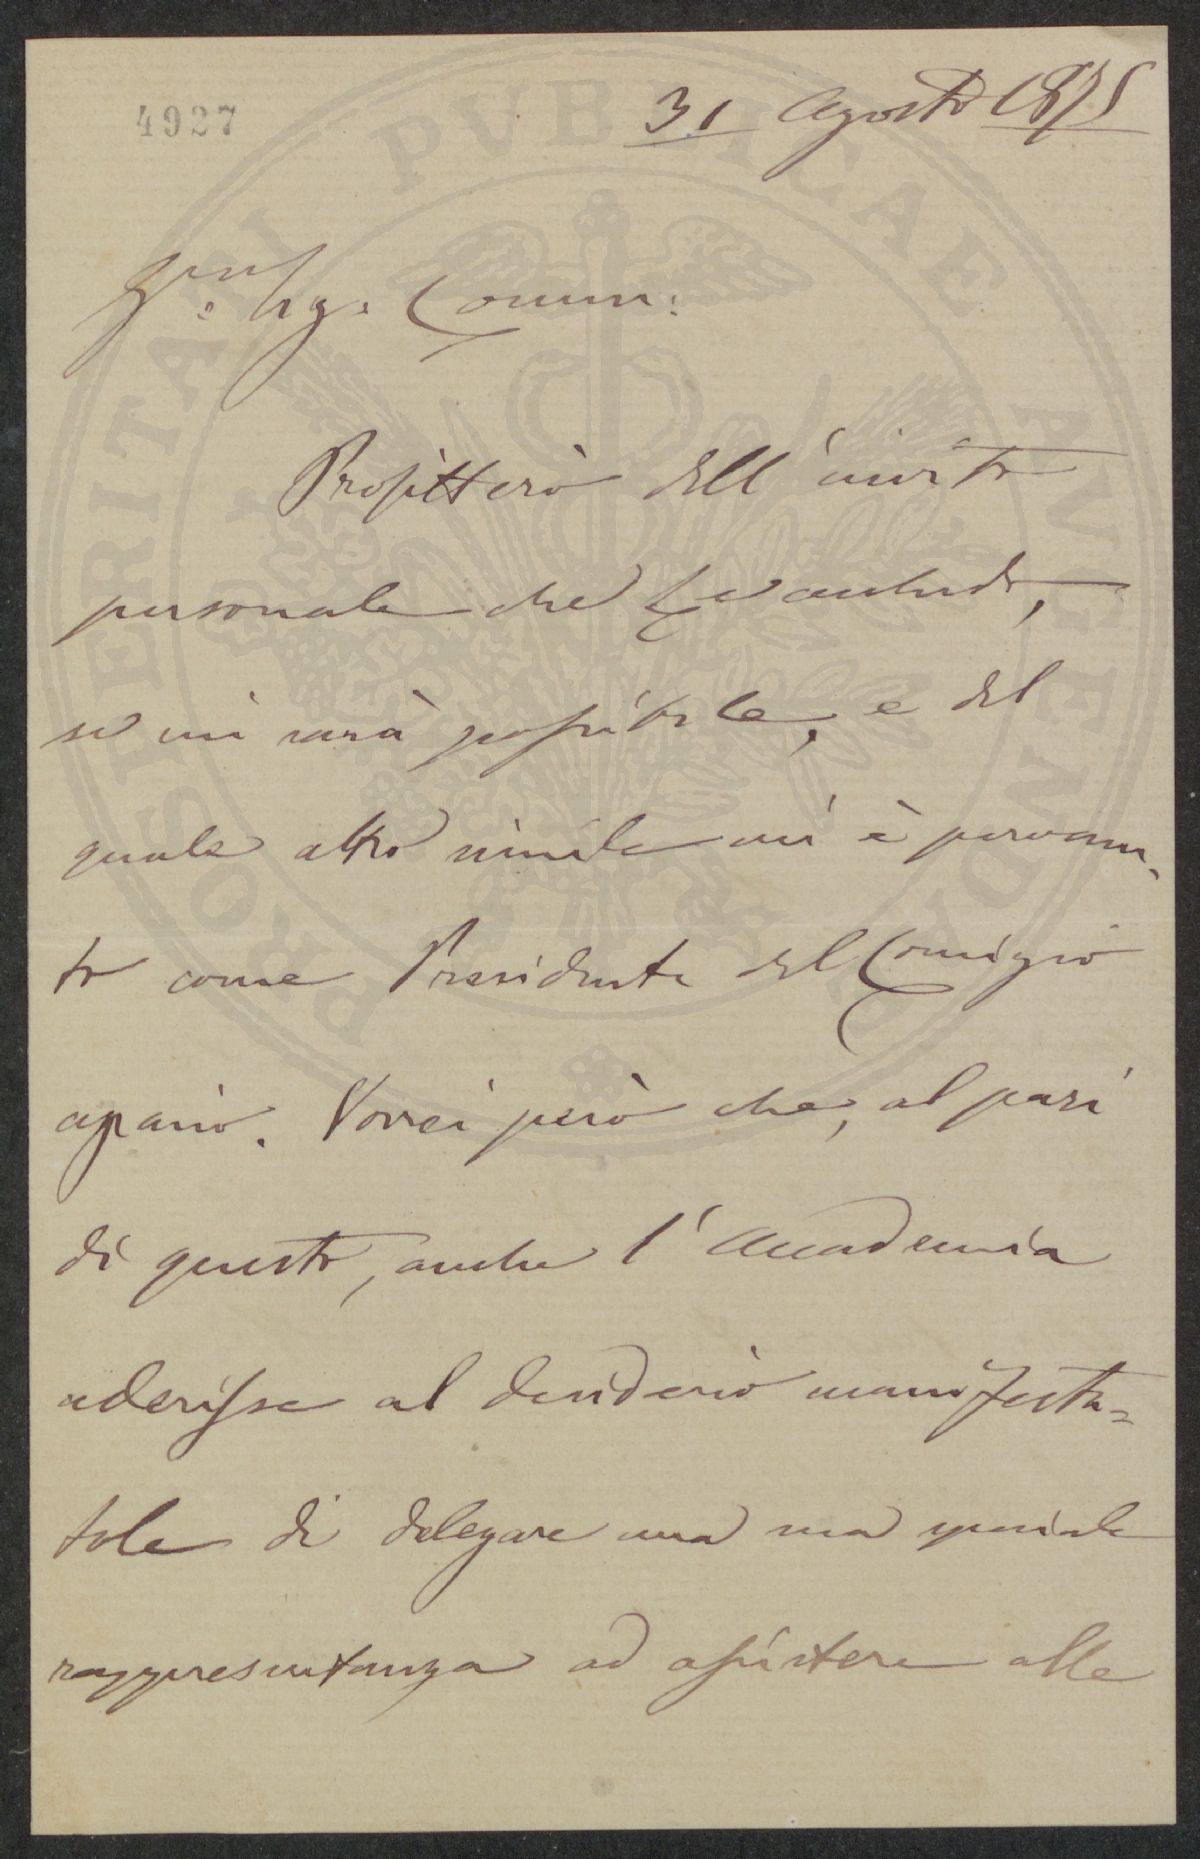 4927
31 Agosto 1875
Sig. Comm.
Profitterò dell'invito
personale che
se mi sarà possibile, e del
quale altro simile mi è pervenu-
to come Presidente del Comizio
agrario. Vorrei però che, al pari
di questo, anche l'Accademia
aderisse al desiderio manifesta=
tole di delegare una sua speciale
rappresentanza ad assistere alle
PROSPERITATI PVBLICAE AVGENDAE